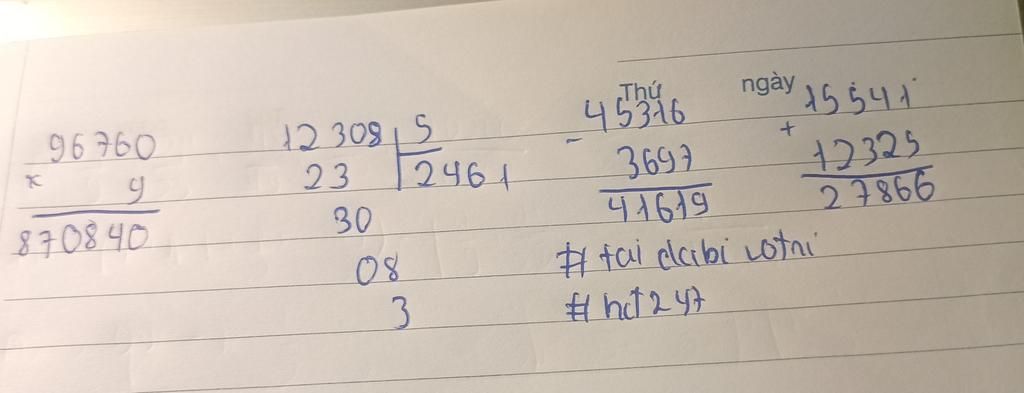 Thứ ngày
96760
x 9
870840
12308 5
23 2461
30
08
3
45316
- 3697
41619
15541
+ 12325
27866
# tai dabi
# hct247